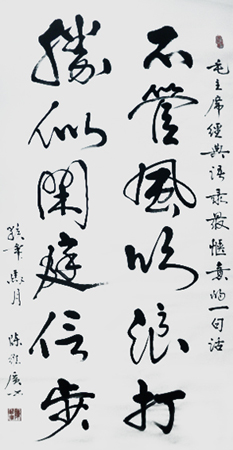 毛主席經典語录最愜意的一句话
不管風吹浪打
勝似閑庭信步
年 月
陳 廣